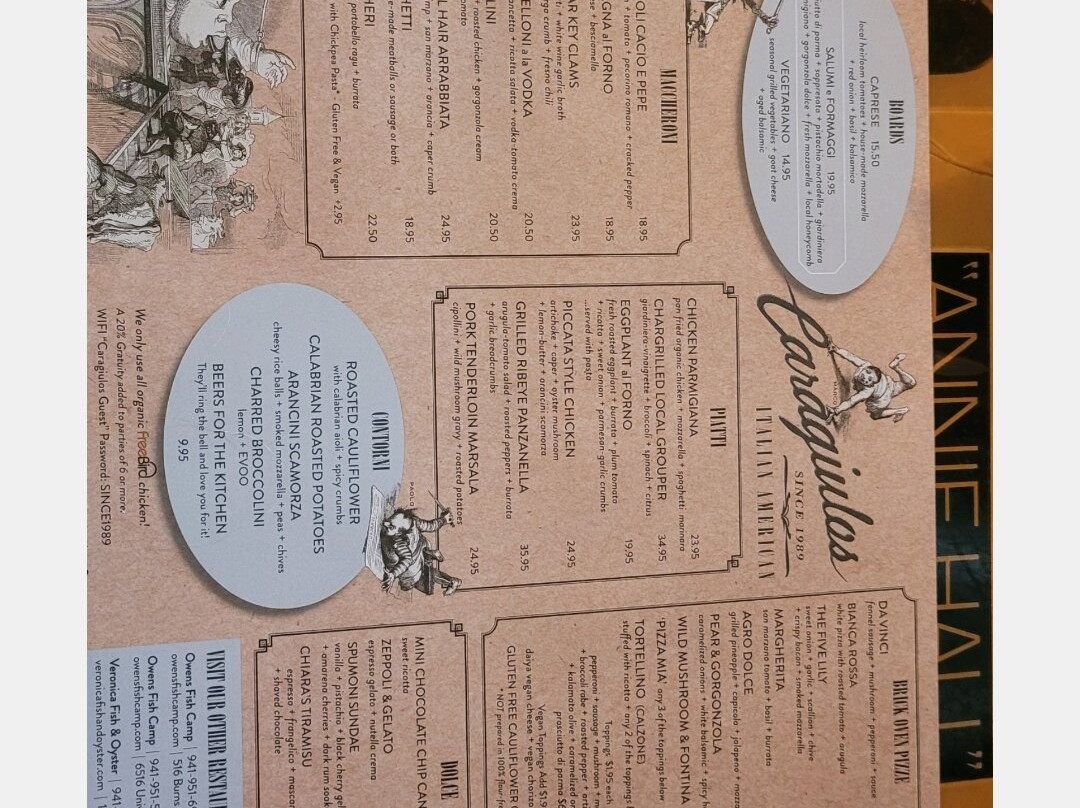 "ANNIE HALL"
BOARDS
CAPRESE 15.50
local heirloom tomatoes + house-made mozzarella
+ red onion + basil + balsamico
SALUMI e FORMAGGI 19.95
di parma + soppresata + pistachio mortadella + giardiniera
+ gorgonzola dolce + fresh mozzarella + local honeycomb
VEGETARIANO 14.95
seasonal grilled vegetables + goat cheese
+ aged balsamic
MACCHERONI
CACIO E PEPE 18.95
+ tomato + pecorino romano + cracked pepper
al FORNO 18.95
+ besciamella
KEY CLAMS 23.95
/ white wine garlic broth
crumb + fresno chili
a la VODKA 20.50
+ ricotta salata + vodka-tomato crema
20.50
+ roasted chicken + gorgonzola cream
HAIR ARRABBIATA 24.95
+ san marzano + arancia + caper crumb
18.95
meatballs or sausage or both
22.50
portobello ragu + burrata
with Chickpea Pasta* - Gluten Free & Vegan +2.95
MARCO
Caragiulos
SINCE 1989
ITALIAN AMERICAN
PIATTI
CHICKEN PARMIGIANA 23.95
pan fried organic chicken + mozzarella + spaghetti marinara
CHARGRILLED LOCAL GROUPER 34.95
giardiniera-vinaigrette + broccoli + spinach + citrus
EGGPLANT al FORNO 19.95
fresh roasted eggplant + burrata + plum tomato
+ ricotta + sweet onion + parmesan-garlic crumbs
...served with pasta
PICCATA STYLE CHICKEN 24.95
artichoke + caper + oyster mushroom
+ lemon-butter + arancini scamorza
GRILLED RIBEYE PANZANELLA 35.95
arugula-tomato salad + roasted peppers + burrata
+ garlic breadcrumbs
PORK TENDERLOIN MARSALA 24.95
cipollini + wild mushroom gravy + roasted potatoes
PAOLO
CONTORNI
ROASTED CAULIFLOWER
with calabrian aioli + spicy crumbs
CALABRIAN ROASTED POTATOES
ARANCINI SCAMORZA
cheesy rice balls + smoked mozzarella + peas + chives
CHARRED BROCCOLINI
lemon + EVOO
BEERS FOR THE KITCHEN
They'll ring the bell and love you for it!
9.95
We only use all organic FreeBird chicken!
A 20% Gratuity added to parties of 6 or more.
WIFI "Caragiulos Guest" Password: SINCE1989
BRICK OVEN PIZZE
DA VINCI
fennel sausage + mushroom + pepperoni + sauce
BIANCA ROSSA
white pizza with roasted tomato + arugula
THE FIVE LILY
sweet onion + garlic + scallion + chive
+ crispy bacon + smoked mozzarella
MARGHERITA
san marzano tomato + basil + burrata
AGRO DOLCE
grilled pineapple + capicola + jalapeno +
PEAR & GORGONZOLA
caramelized onions + white balsamic + spicy
WILD MUSHROOM & FONTINA
'PIZZA MIA' any 3 of the toppings below
TORTELLINO (CALZONE)
stuffed with ricotta + any 2 of the toppings
Toppings $1.95 each
pepperoni + sausage + mushroom +
+ broccoli rabe + roasted pepper +
+ kalamata olive + caramelized
prosciutto di parma
Vegan Toppings Add
daiya vegan cheese + vegan chorizo
GLUTEN FREE CAULIFLOWER
* NOT prepared in 100% flour
DOLCE
MINI CHOCOLATE CHIP
sweet ricotta
ZEPPOLI & GELATO
espresso gelato + nutella crema
SPUMONI SUNDAE
vanilla + pistachio + black cherry
+ amarena cherries + dark rum
CHIARA'S TIRAMISU
espresso + frangelico +
+ shaved chocolate
VISIT OUR OTHER
Owens Fish Camp | 941-951-
owensfishcamp.com | 516 Burns
Owens Fish Camp | 941-951-
owensfishcamp.com | 6516
Veronica Fish & Oyster | 941-
veronicafishandoyster.com |